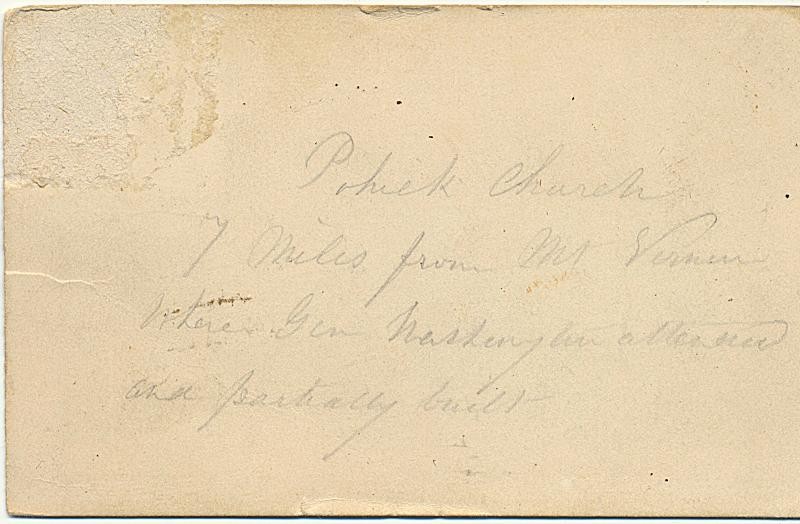 Pohick Church
7 Miles from Mt Vernon
Where Gen Washington attended
and partially built